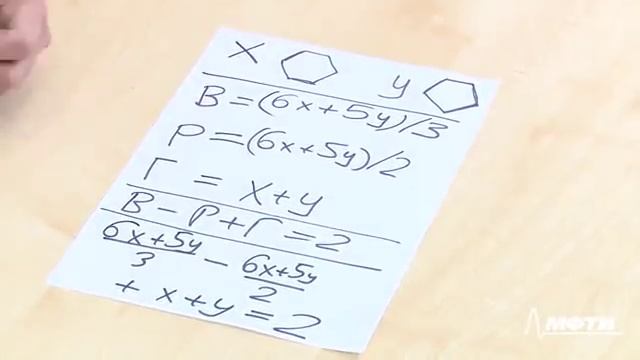 x y
В = (6x+5y)/3
Р = (6x+5y)/2
Г = x+y
В - Р + Г = 2
6x+5y/3 - 6x+5y/2
+ x+y = 2
МФТИ